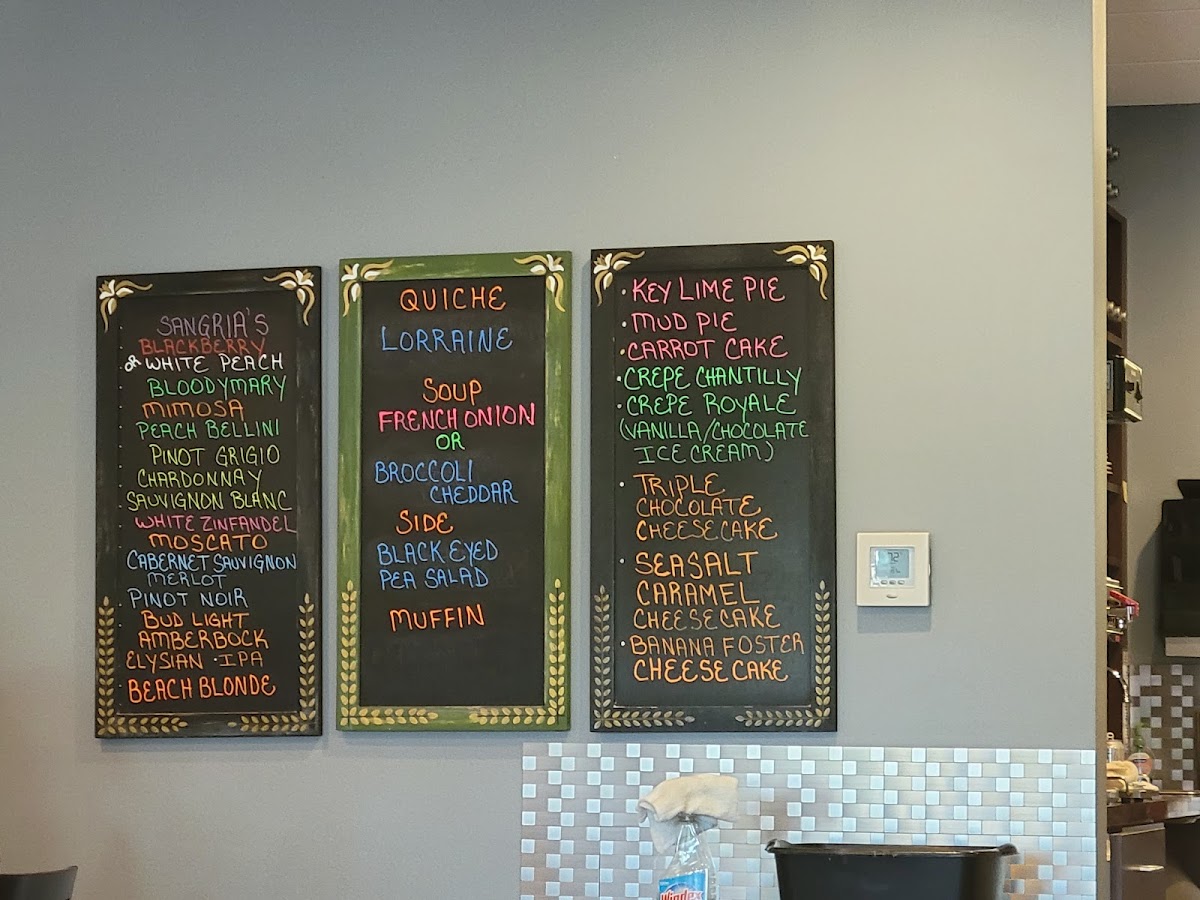 SANGRIA'S
BLACKBERRY
OR WHITE PEACH
BLOODYMARY
MIMOSA
PEACH BELLINI
PINOT GRIGIO
CHARDONNAY
SAUVIGNON BLANC
WHITE ZINFANDEL
MOSCATO
CABERNET SAUVIGNON
MERLOT
PINOT NOIR
BUD LIGHT
AMBERBOCK
ELYSIAN · IPA
BEACH BLONDE
QUICHE
LORRAINE
SOUP
FRENCH ONION
OR
BROCCOLI
CHEDDAR
SIDE
BLACK EYED
PEA SALAD
MUFFIN
· KEY LIME PIE
· MUD PIE
· CARROT CAKE
· CREPE CHANTILLY
· CREPE ROYALE
(VANILLA/CHOCOLATE
ICE CREAM)
· TRIPLE
CHOCOLATE
CHEESECAKE
· SEASALT
CARAMEL
CHEESECAKE
· BANANA FOSTER
CHEESECAKE
72°
Windex